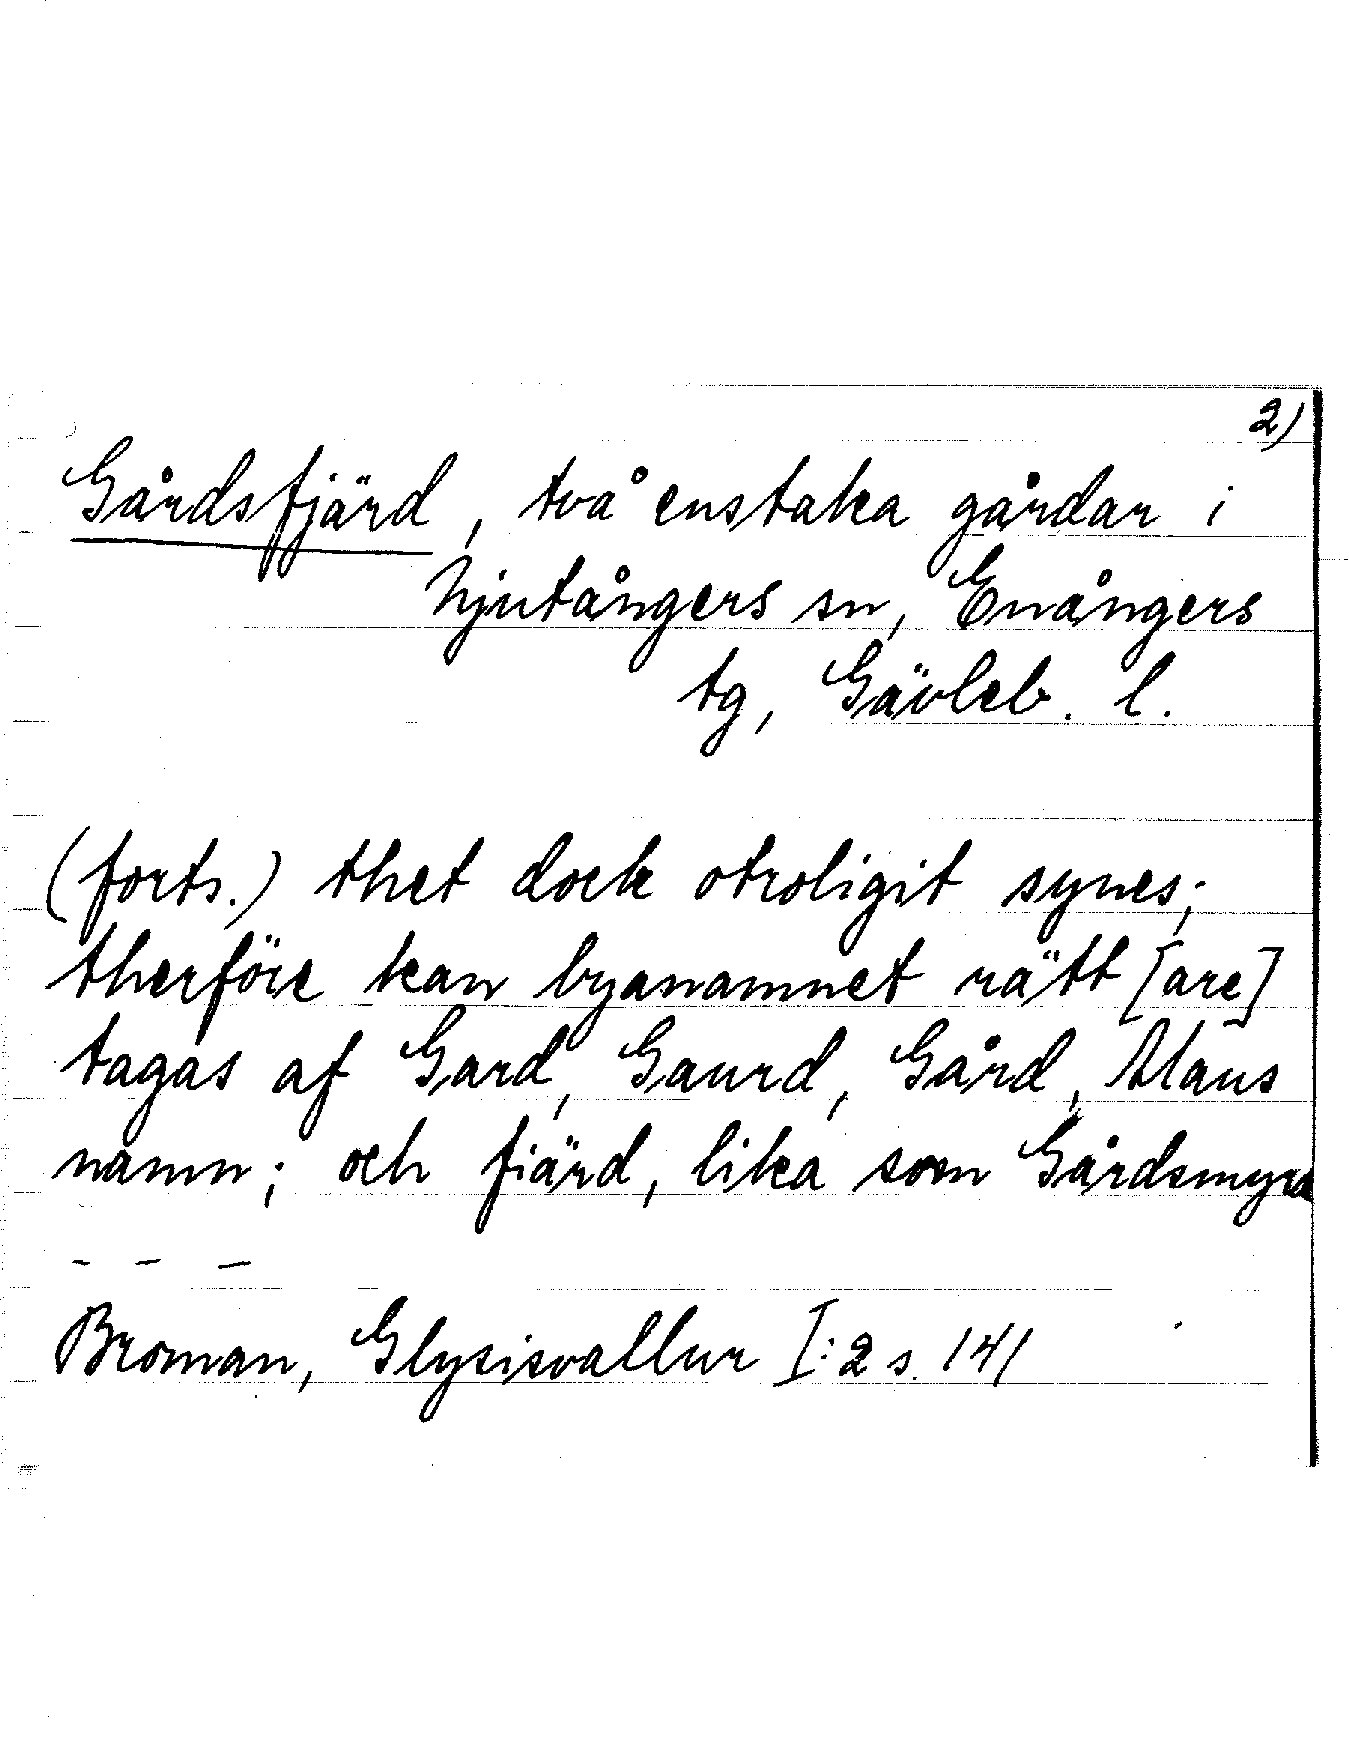 2)
Gårdsfjärd, två enstaka gårdar i
Njutångers sn, Enångers
tg, Gävleb. l.
(forts.) thet dock otroligit synes;
therföre kan byanamnet rätt [are]
tagas af Gard, Gaurd, Gård, Mans
namn; och fiärd, lika som Gårdsmyra
- - -
Broman, Glysisvallur I:2 s. 141